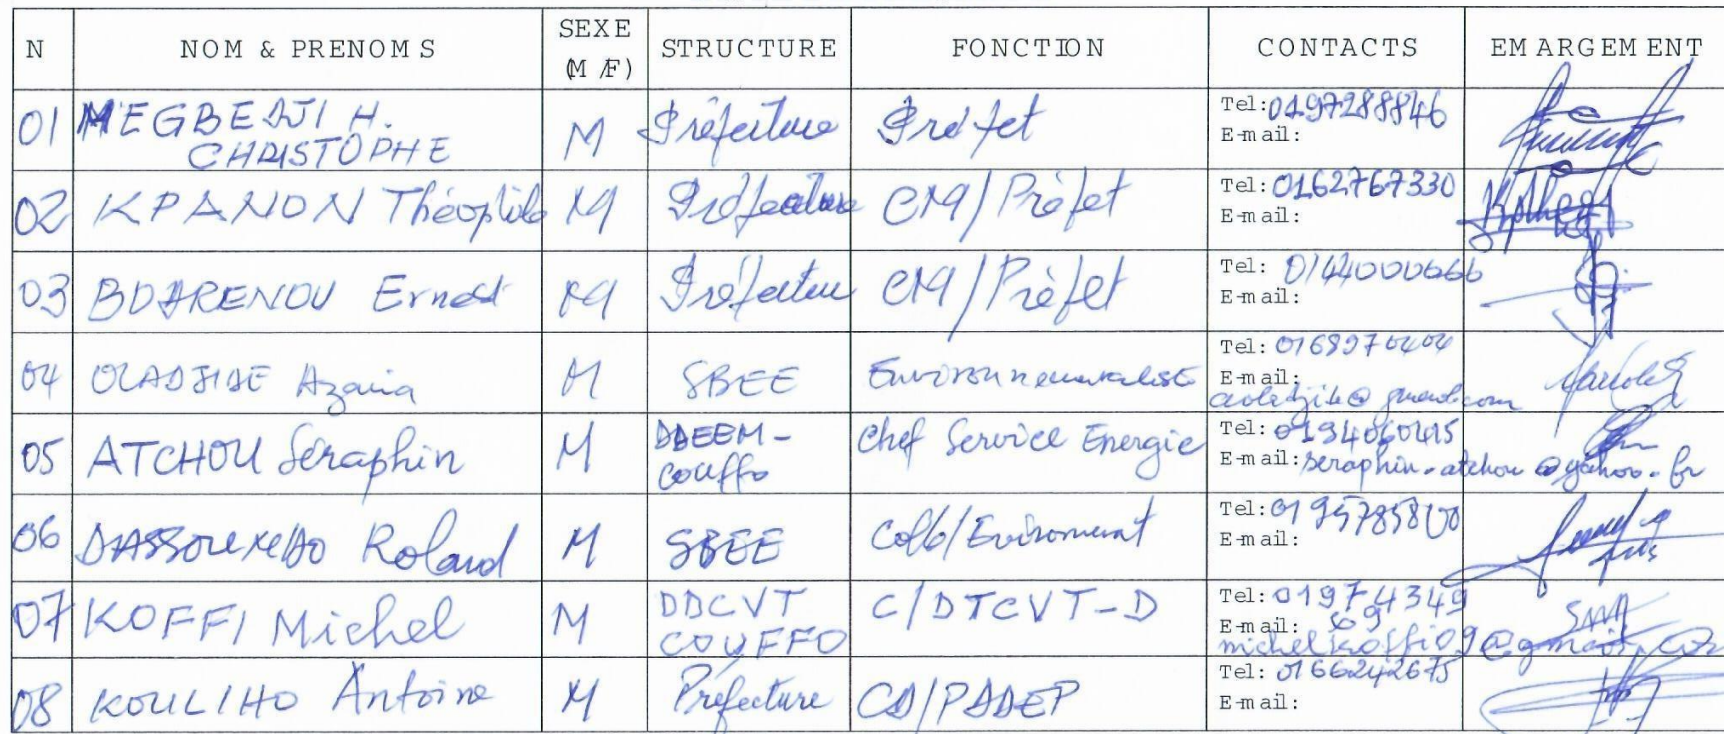 N NOM & PRENOMS SEXE (M/F) STRUCTURE FONCTION CONTACTS EMARGEMENT
01 MEGBEDJI H. CHRISTOPHE M Préfecture Préfet Tel: 0197288846
E-mail:
02 KPANON Théophile M Préfecture CM/Préfet Tel: 0162767330
E-mail:
03 BOARENOU Ernest M Préfecture CM/Préfet Tel: 0144000666
E-mail:
04 OLADJIDE Azaria M SBEE Environnementaliste Tel:
E-mail:
05 ATCHOU Séraphin M DDEEM-COUFFO Chef Service Energie Tel:
E-mail: seraphin.atchou@yahoo.fr
06 Roland M SBEE Collb/Evironment Tel: 0195785800
E-mail:
07 KOFFI Michel M DDCVT COUFFO C/DTCVT-D Tel: 0197434969
E-mail: michelkoffi09@gmail.com
08 KOULIHO Antoine M Préfecture CD/PADEP Tel: 0166242675
E-mail: